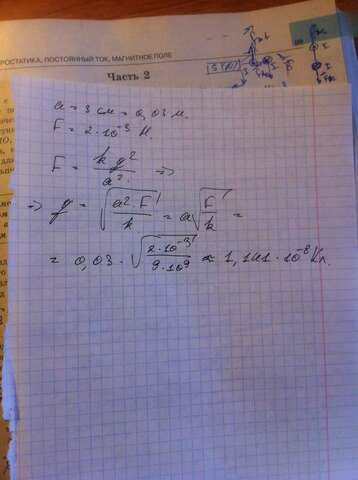 РОСТАТИКА, ПОСТОЯННЫЙ ТОК, МАГНИТНОЕ ПОЛЕ
Часть 2
a = 3 см = 0,03 м.
F = 2·10⁻³ Н.
F = kq²/a² ⇒
⇒ q = √(a²·F/k) = a√(F/k) =
= 0,03·√(2·10⁻³/9·10⁹) ≈ 1,141·10⁻⁸ Кл.